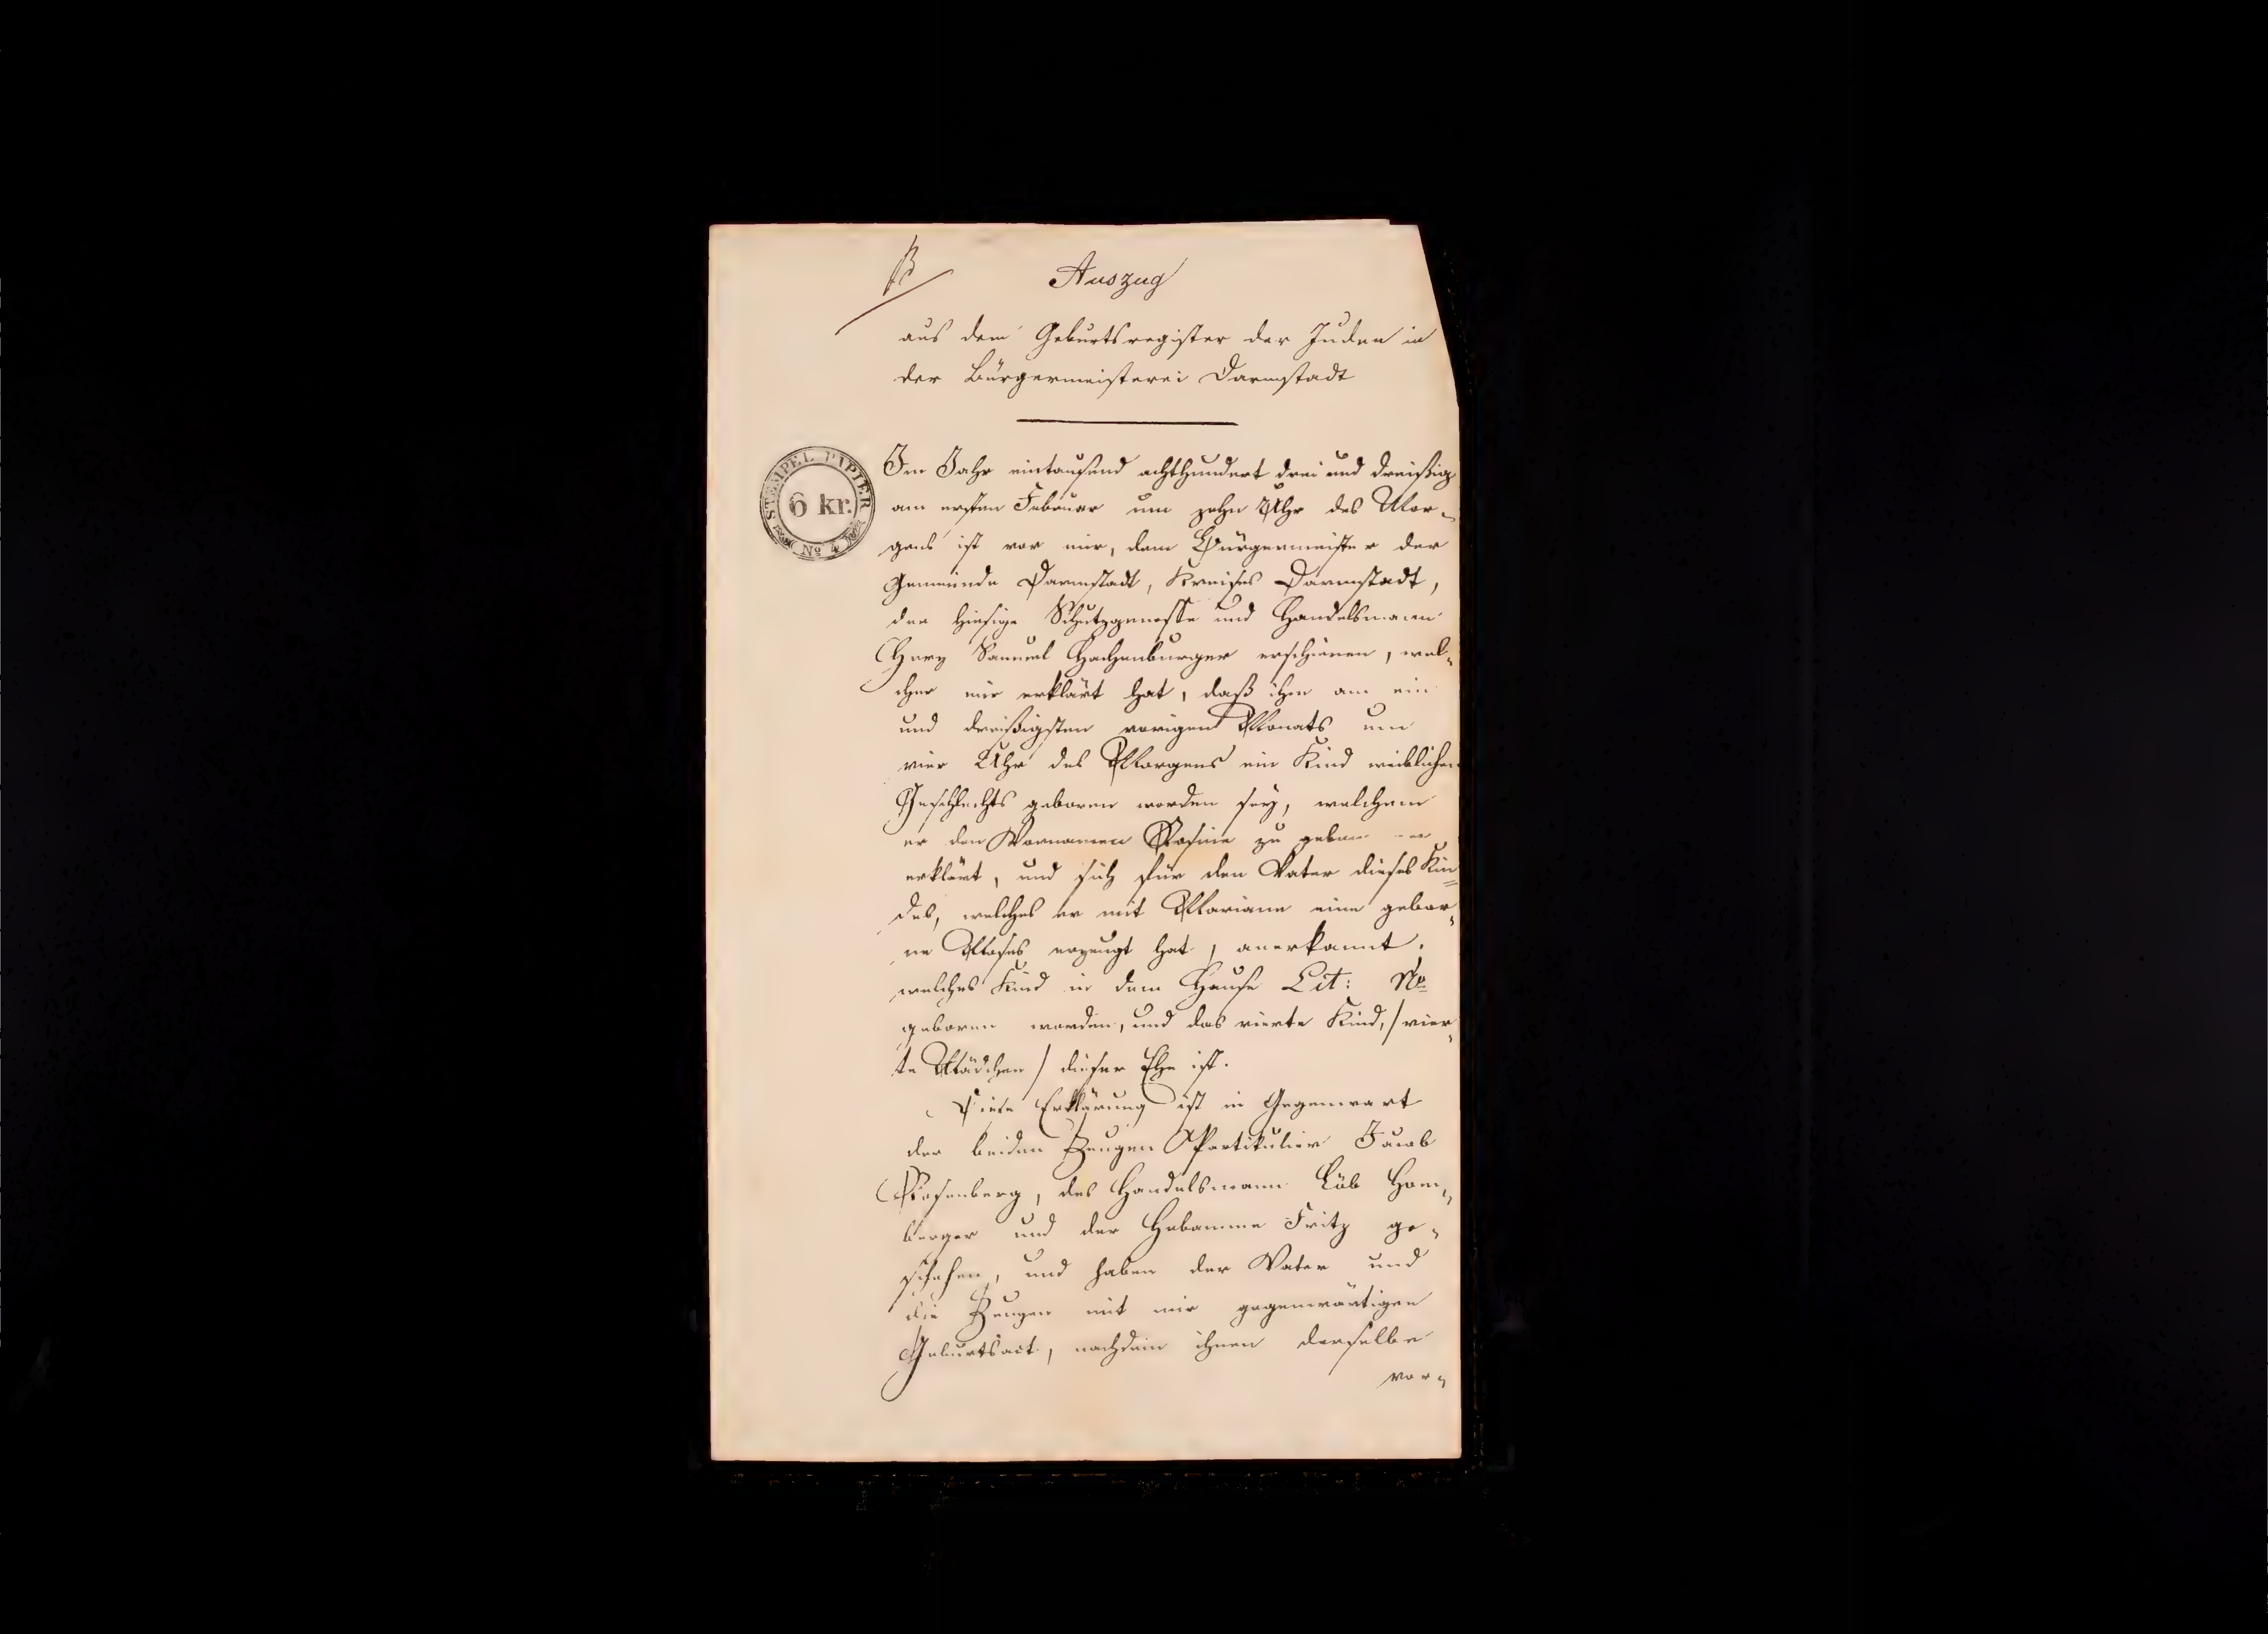 Auszug
aus dem Geburtsregister der Juden in
der Bürgermeisterei Darmstadt
STEMPEL PAPIER
6 kr.
No 4
Im Jahr eintausend achthundert drei und dreißig
am ersten Februar um zehn Uhr des Mor-
gens ist vor mir, dem Bürgermeister der
Gemeinde Darmstadt, Kreises Darmstadt,
der hiesige Schutzgenosse und Handelsmann
Herz Samuel Hachenburger erschienen, wel-
cher mir erklärt hat, daß ihm am ein
und dreißigsten vorigen Monats um
vier Uhr des Morgens ein Kind weiblichen
Geschlechts geboren worden sey, welchem
er den Vornamen Rosine zu geben
erklärt, und sich für den Vater dieses Kin-
des, welches er mit Mariane eine gebor-
ne Moses erzeugt hat, anerkannt.
welches Kind in dem Hause Lit: No
geboren worden, und das vierte Kind, / vier-
te Mädchen / dieser Ehe ist.
Diese Erklärung ist in Gegenwart
der beiden Zeugen Partikulier Jacob
Rosenberg, des Handelsmann Löb Hom-
berger und der Hebamme Fritz ge-
schehen, und haben der Vater und
die Zeugen mit mir gegenwärtigen
Geburtsact, nachdem ihnen derselbe
vor-